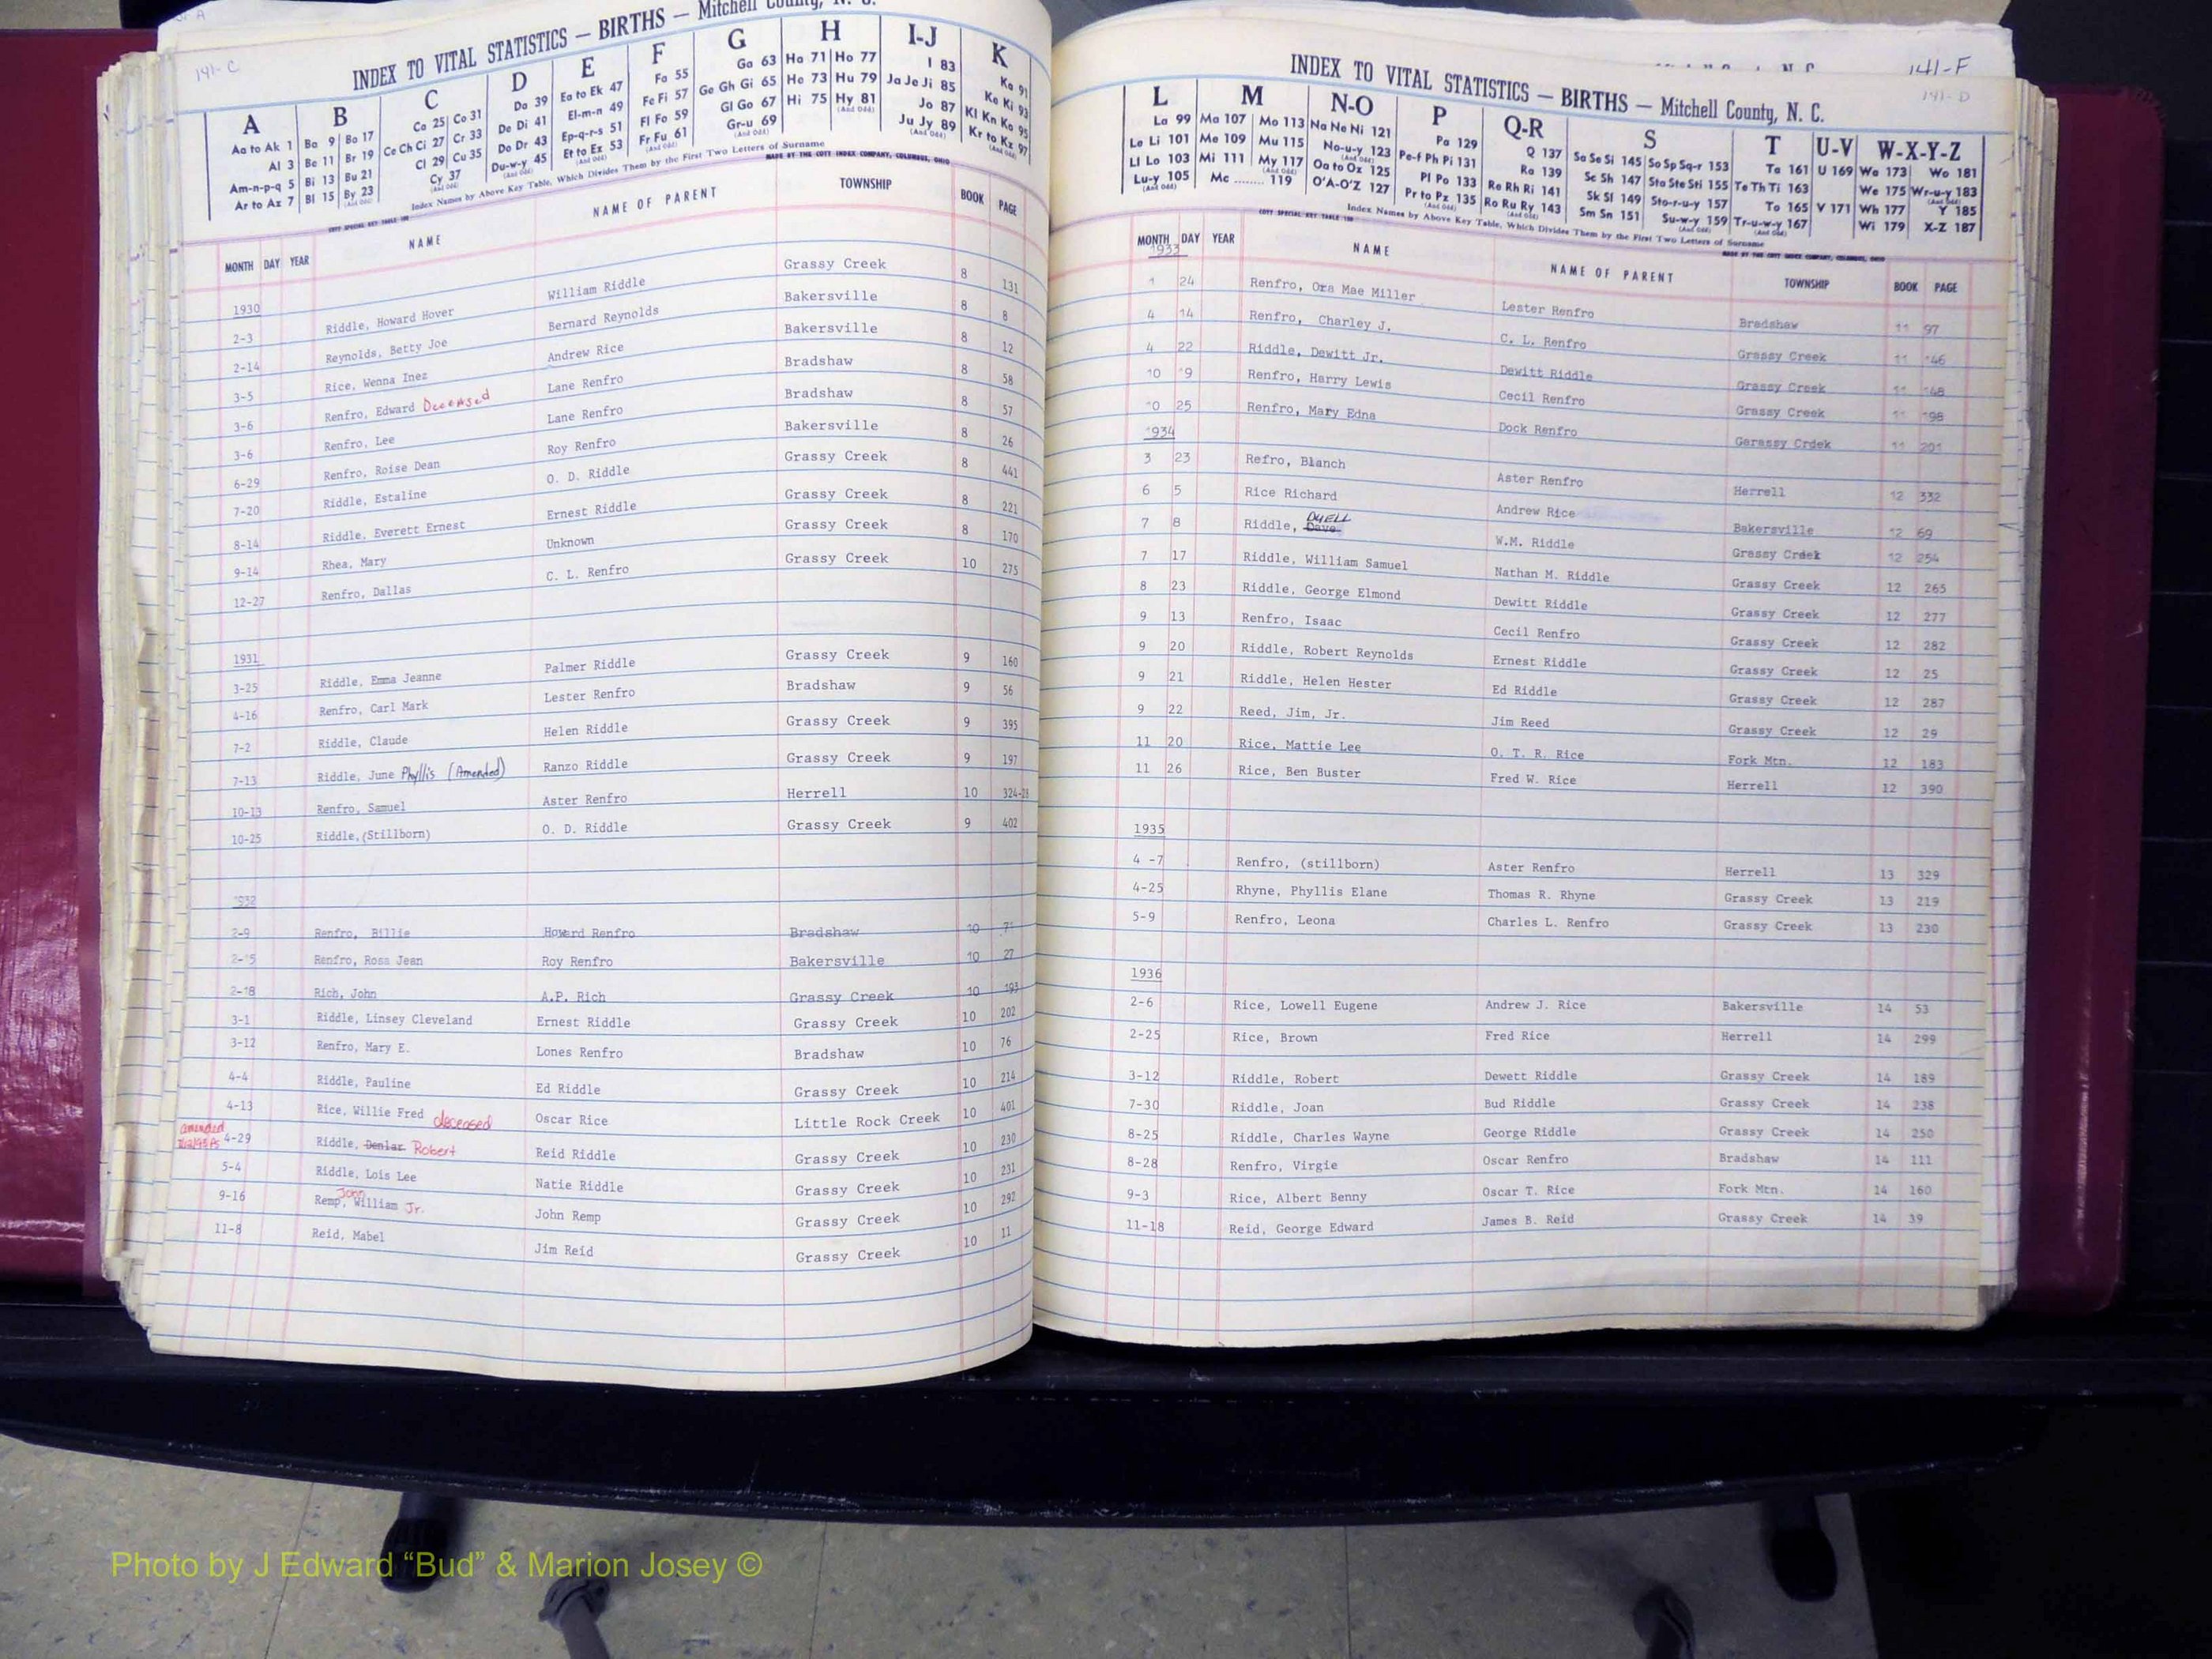 141-C
INDEX TO VITAL STATISTICS — BIRTHS — Mitchell County, N. C.
A B C D E F G H I-J K
Aa to Ak 1 Ba 9 Bo 17 Ca 25 Co 31 Da 39 Ea to Ek 47 Fa 55 Ga 63 Ha 71 Ho 77 I 83 Ka 91
Al 3 Be 11 Br 19 Ce Ch Ci 27 Cr 33 De Di 41 El-m-n 49 Fe Fi 57 Ge Gh Gi 65 He 73 Hu 79 Ja Je Ji 85 Ke Ki 93
Am-n-p-q 5 Bi 13 Bu 21 Cl 29 Cu 35 Do Dr 43 Ep-q-r-s 51 Fl Fo 59 Gl Go 67 Hi 75 Hy 81 (And Odd) Jo 87 Kl Kn Ko 95
Ar to Az 7 Bl 15 By 23 (And Odd) Cy 37 (And Odd) Du-w-y 45 Et to Ez 53 (And Odd) Fr Fu 61 (And Odd) Gr-u 69 (And Odd) Ju Jy 89 (And Odd) Kr to Kz 97 (And Odd)
Index Names by Above Key Table, Which Divides Them by the First Two Letters of Surname
MADE BY THE COTT INDEX COMPANY, COLUMBUS, OHIO
MONTH DAY YEAR NAME NAME OF PARENT TOWNSHIP BOOK PAGE
1930
2-3 Riddle, Howard Hover William Riddle Grassy Creek 8 131
2-14 Reynolds, Betty Joe Bernard Reynolds Bakersville 8 8
3-5 Rice, Wenna Inez Andrew Rice Bakersville 8 12
3-6 Renfro, Edward Deceased Lane Renfro Bradshaw 8 58
3-6 Renfro, Lee Lane Renfro Bradshaw 8 57
6-29 Renfro, Roise Dean Roy Renfro Bakersville 8 26
7-20 Riddle, Estaline O. D. Riddle Grassy Creek 8 441
8-14 Riddle, Everett Ernest Ernest Riddle Grassy Creek 8 221
9-14 Rhea, Mary Unknown Grassy Creek 8 170
12-27 Renfro, Dallas C. L. Renfro Grassy Creek 10 275
1931
3-25 Riddle, Emma Jeanne Palmer Riddle Grassy Creek 9 160
4-16 Renfro, Carl Mark Lester Renfro Bradshaw 9 56
7-2 Riddle, Claude Helen Riddle Grassy Creek 9 395
7-13 Riddle, June Phyllis (Amended) Ranzo Riddle Grassy Creek 9 197
10-13 Renfro, Samuel Aster Renfro Herrell 10 324-28
10-25 Riddle,(Stillborn) O. D. Riddle Grassy Creek 9 402
1932
2-9 Renfro, Billie Howard Renfro Bradshaw 10 71
2-15 Renfro, Ross Jean Roy Renfro Bakersville 10 27
2-18 Rich, John A.P. Rich Grassy Creek 10 193
3-1 Riddle, Linsey Cleveland Ernest Riddle Grassy Creek 10 202
3-12 Renfro, Mary E. Lones Renfro Bradshaw 10 76
4-4 Riddle, Pauline Ed Riddle Grassy Creek 10 214
4-13 Rice, Willie Fred deceased Oscar Rice Little Rock Creek 10 401
amended 4-29 Riddle, Denlar Robert Reid Riddle Grassy Creek 10 230
5-4 Riddle, Lois Lee Natie Riddle Grassy Creek 10 231
9-16 Remp, John William Jr. John Remp Grassy Creek 10 292
11-8 Reid, Mabel Jim Reid Grassy Creek 10 11
141-F
141-D
INDEX TO VITAL STATISTICS — BIRTHS — Mitchell County, N. C.
L M N-O P Q-R S T U-V W-X-Y-Z
La 99 Ma 107 Mo 113 Na Ne Ni 121 Pa 129 Q 137 Sa Se Si 145 So Sp Sq-r 153 Ta 161 U 169 Wa 173 Wo 181
Le Li 101 Me 109 Mu 115 No-u-y 123 (And Odd) Pe-f Ph Pi 131 Ra 139 Sc Sh 147 Sta Ste Sti 155 Te Th Ti 163 We 175 Wr-u-y 183 (And Odd)
Ll Lo 103 Mi 111 My 117 (And Odd) Oa to Oz 125 Pl Po 133 Re Rh Ri 141 Sk Sl 149 Sto-r-u-y 157 To 165 V 171 Wh 177 Y 185
Lu-y 105 (And Odd) Mc ........ 119 O'A-O'Z 127 Pr to Pz 135 (And Odd) Ro Ru Ry 143 (And Odd) Sm Sn 151 Su-w-y 159 (And Odd) Tr-u-w-y 167 (And Odd) Wi 179 X-Z 187
Index Names by Above Key Table, Which Divides Them by the First Two Letters of Surname
MADE BY THE COTT INDEX COMPANY, COLUMBUS, OHIO
MONTH DAY YEAR NAME NAME OF PARENT TOWNSHIP BOOK PAGE
1933
1 24 Renfro, Ora Mae Miller Lester Renfro Bradshaw 11 97
4 14 Renfro, Charley J. C. L. Renfro Grassy Creek 11 146
4 22 Riddle, Dewitt Jr. Dewitt Riddle Grassy Creek 11 148
10 19 Renfro, Harry Lewis Cecil Renfro Grassy Creek 11 198
10 25 Renfro, Mary Edna Dock Renfro Gerassy Crdek 11 201
1934
3 23 Refro, Blanch Aster Renfro Herrell 12 332
6 5 Rice Richard Andrew Rice Bakersville 12 69
7 8 Riddle, Dave DYELL W.M. Riddle Grassy Creek 12 254
7 17 Riddle, William Samuel Nathan M. Riddle Grassy Creek 12 265
8 23 Riddle, George Elmond Dewitt Riddle Grassy Creek 12 277
9 13 Renfro, Isaac Cecil Renfro Grassy Creek 12 282
9 20 Riddle, Robert Reynolds Ernest Riddle Grassy Creek 12 25
9 21 Riddle, Helen Hester Ed Riddle Grassy Creek 12 287
9 22 Reed, Jim, Jr. Jim Reed Grassy Creek 12 29
11 20 Rice, Mattie Lee O. T. R. Rice Fork Mtn. 12 183
11 26 Rice, Ben Buster Fred W. Rice Herrell 12 390
1935
4 -7 Renfro, (stillborn) Aster Renfro Herrell 13 329
4-25 Rhyne, Phyllis Elane Thomas R. Rhyne Grassy Creek 13 219
5-9 Renfro, Leona Charles L. Renfro Grassy Creek 13 230
1936
2-6 Rice, Lowell Eugene Andrew J. Rice Bakersville 14 53
2-25 Rice, Brown Fred Rice Herrell 14 299
3-12 Riddle, Robert Dewett Riddle Grassy Creek 14 189
7-30 Riddle, Joan Bud Riddle Grassy Creek 14 238
8-25 Riddle, Charles Wayne George Riddle Grassy Creek 14 250
8-28 Renfro, Virgie Oscar Renfro Bradshaw 14 111
9-3 Rice, Albert Benny Oscar T. Rice Fork Mtn. 14 160
11-18 Reid, George Edward James B. Reid Grassy Creek 14 39
Photo by J Edward “Bud” & Marion Josey ©